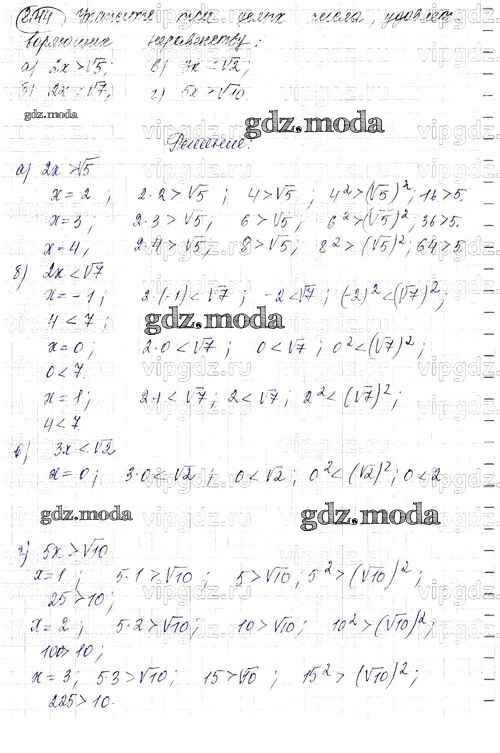 2.44 Укажите три целых числа, удовлет-
воряющие неравенству:
а) 2x > √5; в) 3x < √2;
б) 2x < √7; г) 5x > √10.
gdz.moda
gdz.moda
Решение:
а) 2x > √5
x = 2; 2·2 > √5; 4 > √5; 4² > (√5)²; 16 > 5.
x = 3; 2·3 > √5; 6 > √5; 6² > (√5)²; 36 > 5.
x = 4; 2·4 > √5; 8 > √5; 8² > (√5)²; 64 > 5
б) 2x < √7
x = -1; 2·(-1) < √7; -2 < √7; (-2)² < (√7)²;
4 < 7;
gdz.moda
x = 0; 2·0 < √7; 0 < √7; 0² < (√7)²;
0 < 7.
x = 1; 2·1 < √7; 2 < √7; 2² < (√7)²;
4 < 7
в) 3x < √2
x = 0; 3·0 < √2; 0 < √2; 0² < (√2)²; 0 < 2
gdz.moda
gdz.moda
г) 5x > √10
x = 1; 5·1 > √10; 5 > √10; 5² > (√10)²;
25 > 10;
x = 2; 5·2 > √10; 10 > √10; 10² > (√10)²;
100 > 10;
x = 3; 5·3 > √10; 15 > √10; 15² > (√10)²;
225 > 10.